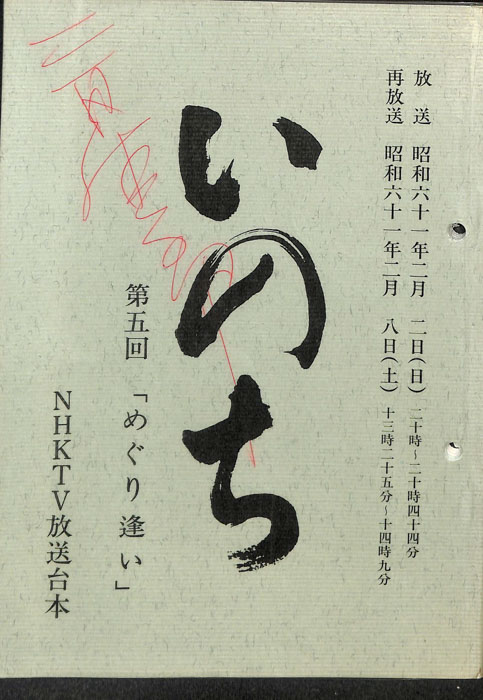 放送 昭和六十一年二月 二日(日) 二十時～二十時四十四分
再放送 昭和六十一年二月 八日(土) 十三時二十五分～十四時九分
いのち
第五回 「めぐり逢い」
NHKTV放送台本